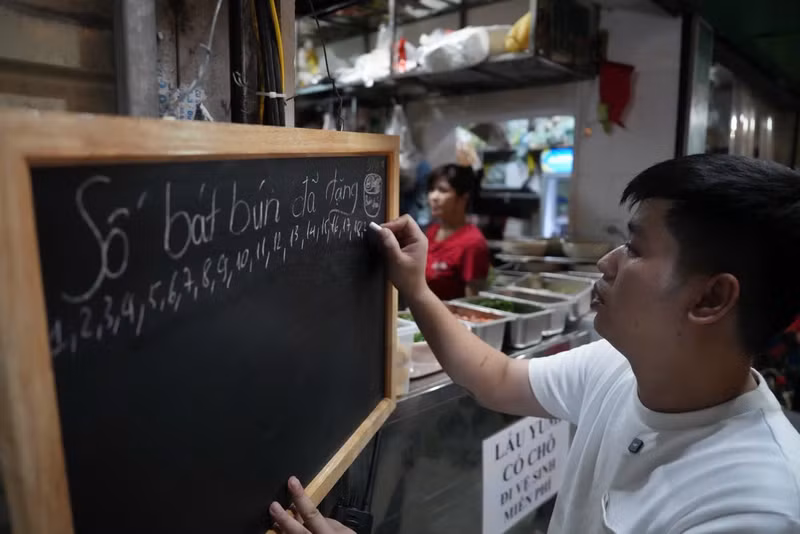 Số bát bún đã tặng
1, 2, 3, 4, 5, 6, 7, 8, 9, 10, 11, 12, 13, 14, 15, 16, 17, 18,
LẨU
CÓ CHỖ
ĐI VỆ SINH
MIỄN PHÍ